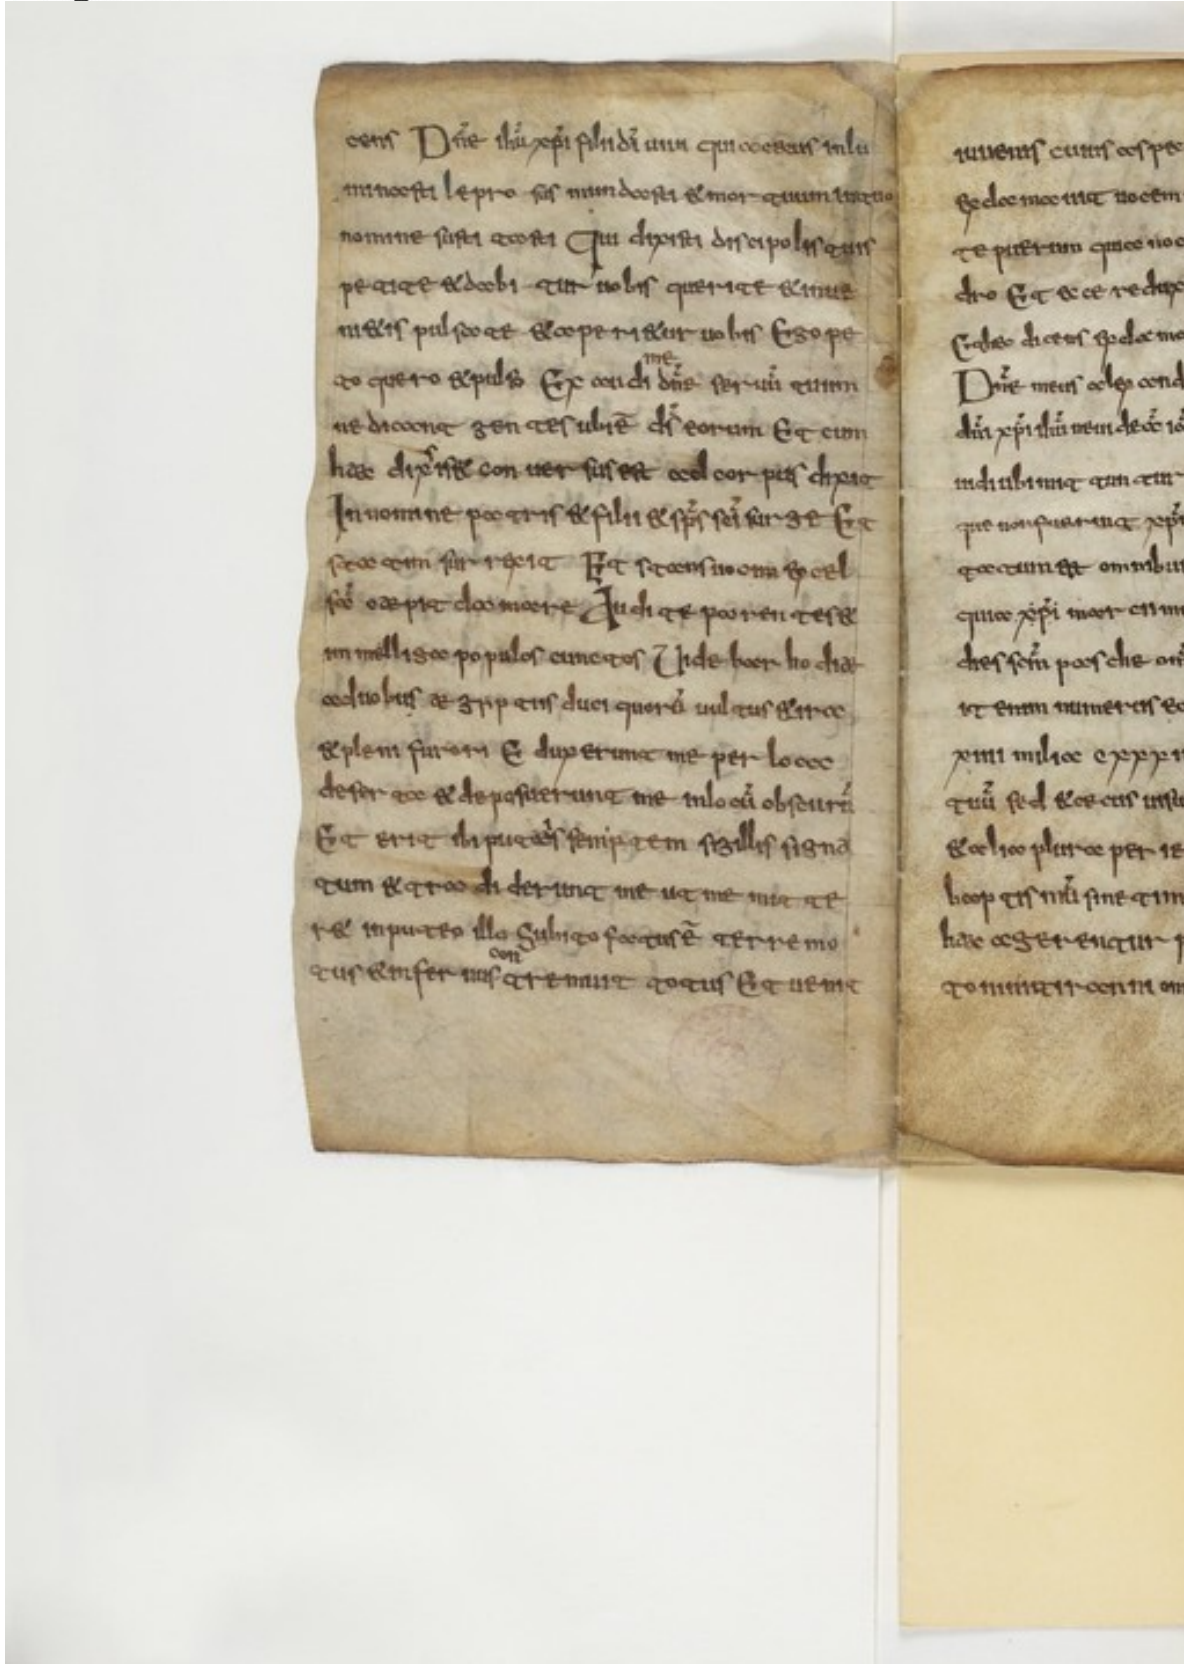 cens Dn̄e ihū xp̄i filii dī uiui qui caecus inlu
minasti leprosis mundasti & mortuum in tuo
nomine suscitasti Qui dixisti discipolis tuis
petite & dabitur uobis querite & inue
ni&is pulsate & aperi&ur uobis Ego pe
to quero & pulso Exaudi me dn̄e seruū tuum
ne dicant gentes ubi ē ds̄ eorum Et cum
haec dixiss& conuersus est ad corpus dixit
In nomine patris & filii & sp̄s sc̄i surge Et
statim surrexit Et stans uoam excel
sā caepit clamare Audite parentes &
intelliga populos cunctos Uidebar hodiae
a duobus aegyptiis duci quorū uultus & irae
& pleni furori & duxerunt me per loca
deserta & deposuerunt me in locū obscurū
Et erit ibi puteus septem sigillis signa
tum & tradiderunt me ut me mitte
r& in puteo illo Subito factus ē terremo
tus & infernus contremuit totus Et uenit
iuuenis cuius aspe
exclamauit uocem
te puerum quia no
dro Et ecce redux
Egdeo dicens exclamo
Dn̄e meus alexand
dn̄i xp̄i ihū
que non fuerunt xp̄i
tatum est omnibu
quia xp̄i mar
dies sc̄m pasche om
it enim numerus eo
xiiii milia cxxxi
tuū sed & caecus uisu
& alia plura per ie
baptismū sine tim
haec agerentur p